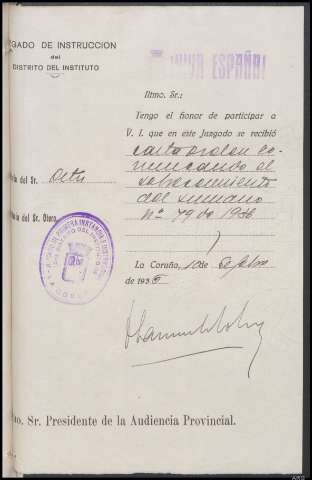 GADO DE INSTRUCCION
del
DISTRITO DEL INSTITUTO
¡VIVA ESPAÑA!
Iltmo. Sr.:
Tengo el honor de participar a
V. I. que en este Juzgado se recibió
carta orden co-
municando el
sobreseimiento
del sumario
nº 79 de 1936
ría del Sr.
ría del Sr. Otero
La Coruña, 10 de Sepbre
de 193
mo. Sr. Presidente de la Audiencia Provincial.